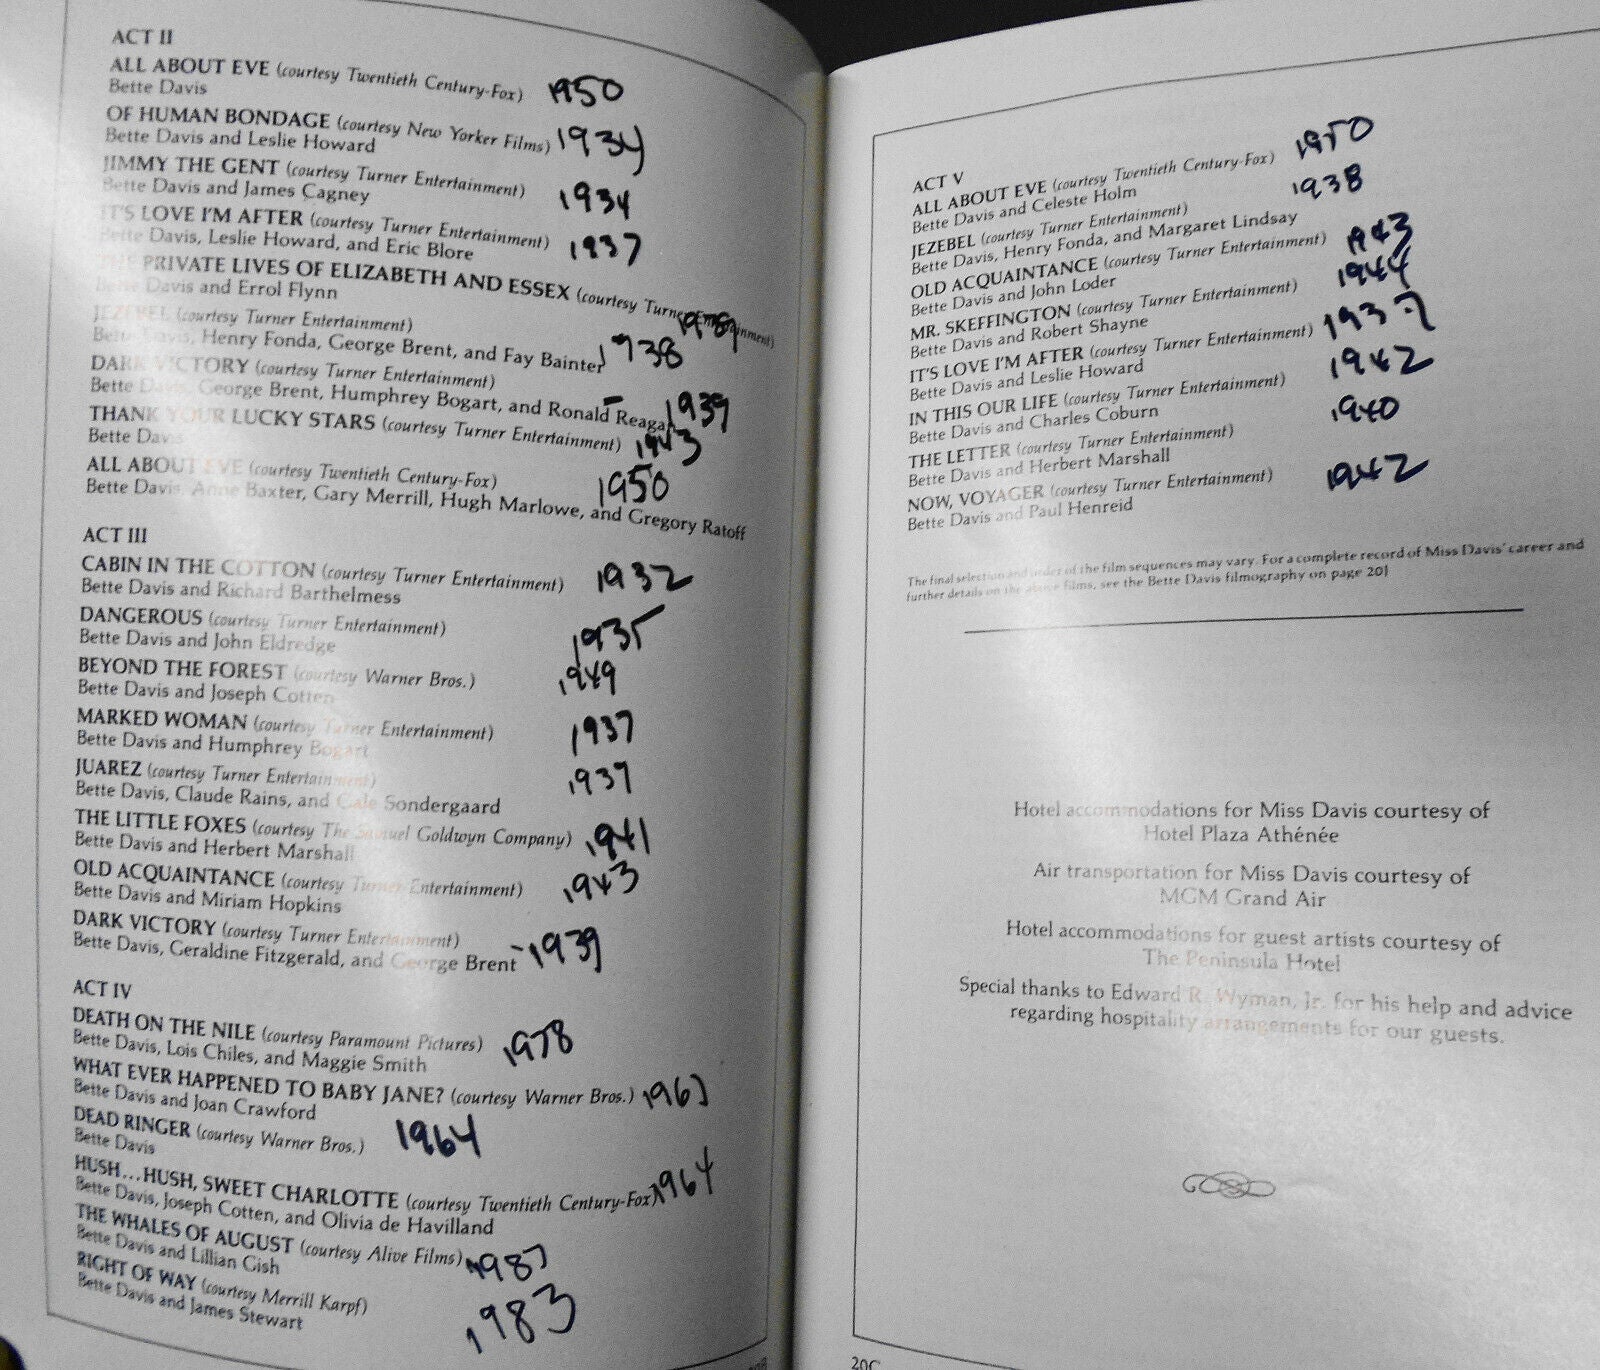 ACT II
ALL ABOUT EVE (courtesy Twentieth Century-Fox) 1950
Bette Davis
OF HUMAN BONDAGE (courtesy New Yorker Films) 1934
Bette Davis and Leslie Howard
JIMMY THE GENT (courtesy Turner Entertainment) 1934
Bette Davis and James Cagney
IT'S LOVE I'M AFTER (courtesy Turner Entertainment) 1937
Bette Davis, Leslie Howard, and Eric Blore
THE PRIVATE LIVES OF ELIZABETH AND ESSEX (courtesy Turner Entertainment) 1939
Bette Davis and Errol Flynn
JEZEBEL (courtesy Turner Entertainment)
Bette Davis, Henry Fonda, George Brent, and Fay Bainter 1938
DARK VICTORY (courtesy Turner Entertainment)
Bette Davis, George Brent, Humphrey Bogart, and Ronald Reagan 1939
THANK YOUR LUCKY STARS (courtesy Turner Entertainment) 1943
Bette Davis
ALL ABOUT EVE (courtesy Twentieth Century-Fox) 1950
Bette Davis, Anne Baxter, Gary Merrill, Hugh Marlowe, and Gregory Ratoff
ACT III
CABIN IN THE COTTON (courtesy Turner Entertainment) 1932
Bette Davis and Richard Barthelmess
DANGEROUS (courtesy Turner Entertainment) 1935
Bette Davis and John Eldredge
BEYOND THE FOREST (courtesy Warner Bros.) 1949
Bette Davis and Joseph Cotten
MARKED WOMAN (courtesy Turner Entertainment) 1937
Bette Davis and Humphrey Bogart
JUAREZ (courtesy Turner Entertainment) 1939
Bette Davis, Claude Rains, and Gale Sondergaard
THE LITTLE FOXES (courtesy The Samuel Goldwyn Company) 1941
Bette Davis and Herbert Marshall
OLD ACQUAINTANCE (courtesy Turner Entertainment) 1943
Bette Davis and Miriam Hopkins
DARK VICTORY (courtesy Turner Entertainment)
Bette Davis, Geraldine Fitzgerald, and George Brent 1939
ACT IV
DEATH ON THE NILE (courtesy Paramount Pictures) 1978
Bette Davis, Lois Chiles, and Maggie Smith
WHAT EVER HAPPENED TO BABY JANE? (courtesy Warner Bros.)
Bette Davis and Joan Crawford
DEAD RINGER (courtesy Warner Bros.) 1964
Bette Davis
HUSH...HUSH, SWEET CHARLOTTE (courtesy Twentieth Century-Fox) 1964
Bette Davis, Joseph Cotten, and Olivia de Havilland
THE WHALES OF AUGUST (courtesy Alive Films) 1987
Bette Davis and Lillian Gish
RIGHT OF WAY (courtesy Merrill Karpf) 1983
Bette Davis and James Stewart
ACT V
ALL ABOUT EVE (courtesy Twentieth Century-Fox) 1950
Bette Davis and Celeste Holm
JEZEBEL (courtesy Turner Entertainment) 1938
Bette Davis, Henry Fonda, and Margaret Lindsay
OLD ACQUAINTANCE (courtesy Turner Entertainment) 1943
Bette Davis and John Loder
MR. SKEFFINGTON (courtesy Turner Entertainment) 1944
Bette Davis and Robert Shayne
IT'S LOVE I'M AFTER (courtesy Turner Entertainment) 1937
Bette Davis and Leslie Howard
IN THIS OUR LIFE (courtesy Turner Entertainment) 1942
Bette Davis and Charles Coburn
THE LETTER (courtesy Turner Entertainment) 1940
Bette Davis and Herbert Marshall
NOW, VOYAGER (courtesy Turner Entertainment) 1942
Bette Davis and Paul Henreid
The final selection and order of the film sequences may vary. For a complete record of Miss Davis' career and
further details on the above films, see the Bette Davis filmography on page 20I
Hotel accommodations for Miss Davis courtesy of
Hotel Plaza Athénée
Air transportation for Miss Davis courtesy of
MGM Grand Air
Hotel accommodations for guest artists courtesy of
The Peninsula Hotel
Special thanks to Edward R. Wyman, Jr. for his help and advice
regarding hospitality arrangements for our guests.